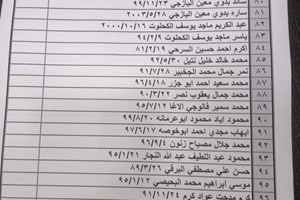 ٨٠ ساند بدوي معين اليازجي ٩٩/١١/٢٣
٨١ ساره بدوي معين اليازجي ٢٠٠٣/٥/٢٨
٨٢ عبد الكريم ماجد يوسف الكحلوت ٢٠٠٠/١٠/١٦
٨٣ ياسر ماجد يوسف الكحلوت ٩٤/٢/٩
٨٤ اكرم احمد حسين السرحي ٨١/٢/١٩
٨٥ محمد خالد خليل نتيل ٩٢/٥/٣٠
٨٦ نمر جمال محمد الجخبير ٩١/٧/٢٨
٨٧ محمد سعيد احمد ابو جزر ٩٦/٤/١٨
٨٨ محمد جمال يعقوب نصر ٩٠/٣/٢٢
٨٩ محمد سمير فالوجي الاغا ٩٥/٧/١٢
٩٠ محمود اياد محمود ابوعرمانه ٩٩/٨/٢٠
٩١ ايهاب مجدي احمد ابوخوصه ٩٧/٦/١
٩٢ محمد جلال مصباح زنون ٩٦/٩/٤
٩٣ محمود عبد اللطيف عبد الله النجار ٩٥/١/٢١
٩٤ حسن علي مصطفي البرقي ٨٩/٣/٢٦
٩٥ موسي ابراهيم محمد البحيصي ٩٥/١/١٢
٩٦ كرم مدحت عواد كرم ٩١/١١/٢٤